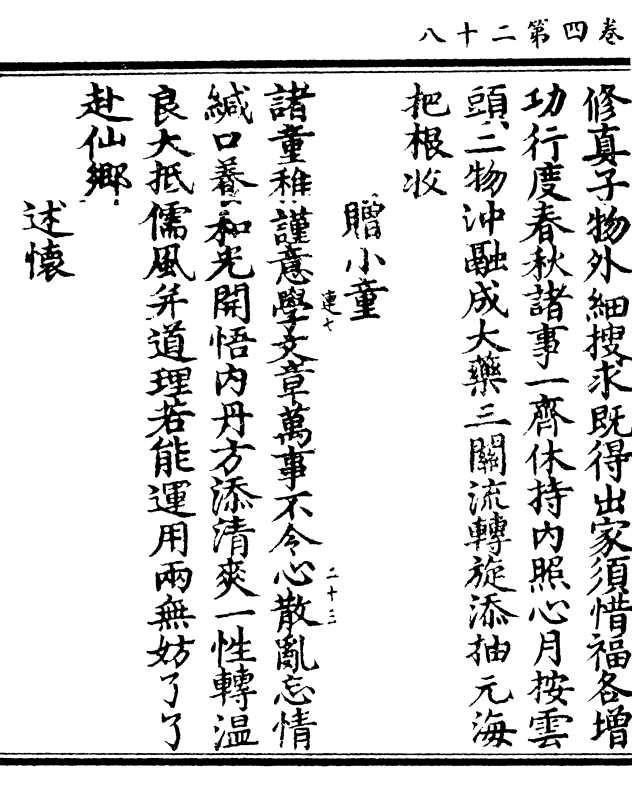 卷四第二十八
修真子物外細搜求既得出家須惜福各增
功行度春秋諸事一齊休持內照心月按雲
頭二物沖融成大藥三關流轉旋添抽元海
把根收
贈小童
連七
諸童稚謹意學文章萬事不令心散亂忘情
二十三
緘口養和光開悟內丹方添清爽一性轉溫
良大抵儒風并道理若能運用兩無妨了了
赴仙鄉
述懷